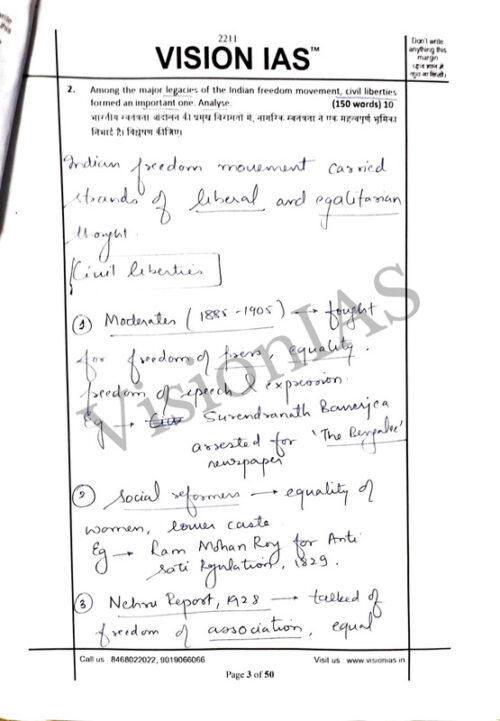 2211
VISION IAS™
Don't write
anything this
margin
(इस भाग में
कुछ ना लिखें)
2. Among the major legacies of the Indian freedom movement, civil liberties
formed an important one. Analyse. (150 words) 10
भारतीय स्वतंत्रता आंदोलन की प्रमुख विरासतों में, नागरिक स्वतंत्रता ने एक महत्वपूर्ण भूमिका
निभाई है। विश्लेषण कीजिए।
Indian freedom movement carried
strands of liberal and egalitarian
thought.
Civil liberties
① Moderates (1885-1905) → fought
for freedom of press, equality.
freedom of speech & expression.
Eg → Surendranath Banerjea
arrested for 'The Bengalee'
newspaper
② Social reformers → equality of
women, lower caste
Eg → Ram Mohan Roy for Anti
Sati Regulation, 1829.
③ Nehru Report, 1928 → talked of
freedom of association, equal
VisionIAS
Call us : 8468022022, 9019066066 Visit us : www.visionias.in
Page 3 of 50